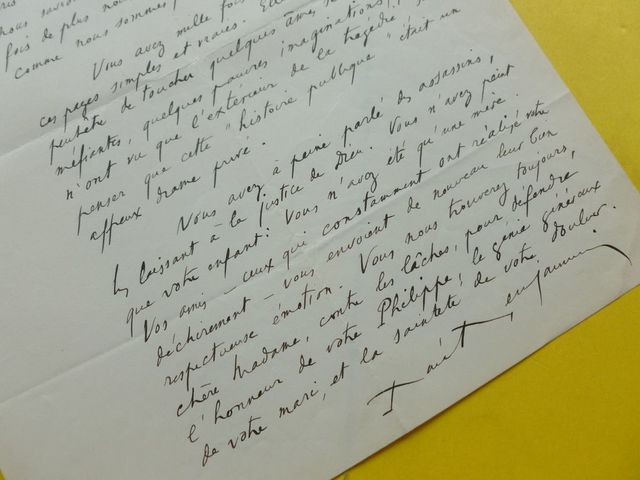 nous savions
fois de plus nous
comme nous sommes
Vous avez mille fois
ces pages simples et vraies. Elle
peut-être de toucher quelques âmes,
méfiantes, quelques pauvres imaginations,
n'ont vu que l'extérieur de la tragédie,
penser que cette "histoire publique" était un
affreux drame privé.
Vous avez à peine parlé des assassins,
les laissant à la Justice de Dieu. Vous n'avez peint
que votre enfant: Vous n'avez été qu'une mère.
Vos amis – ceux qui constamment ont réalisé votre
déchirement – vous envoient de nouveau leur bien
respectueuse émotion. Vous nous trouverez toujours,
chère Madame, contre les lâches, pour défendre
l'honneur de votre Philippe, le génie généreux
de votre mari, et la sainteté de votre douleur.